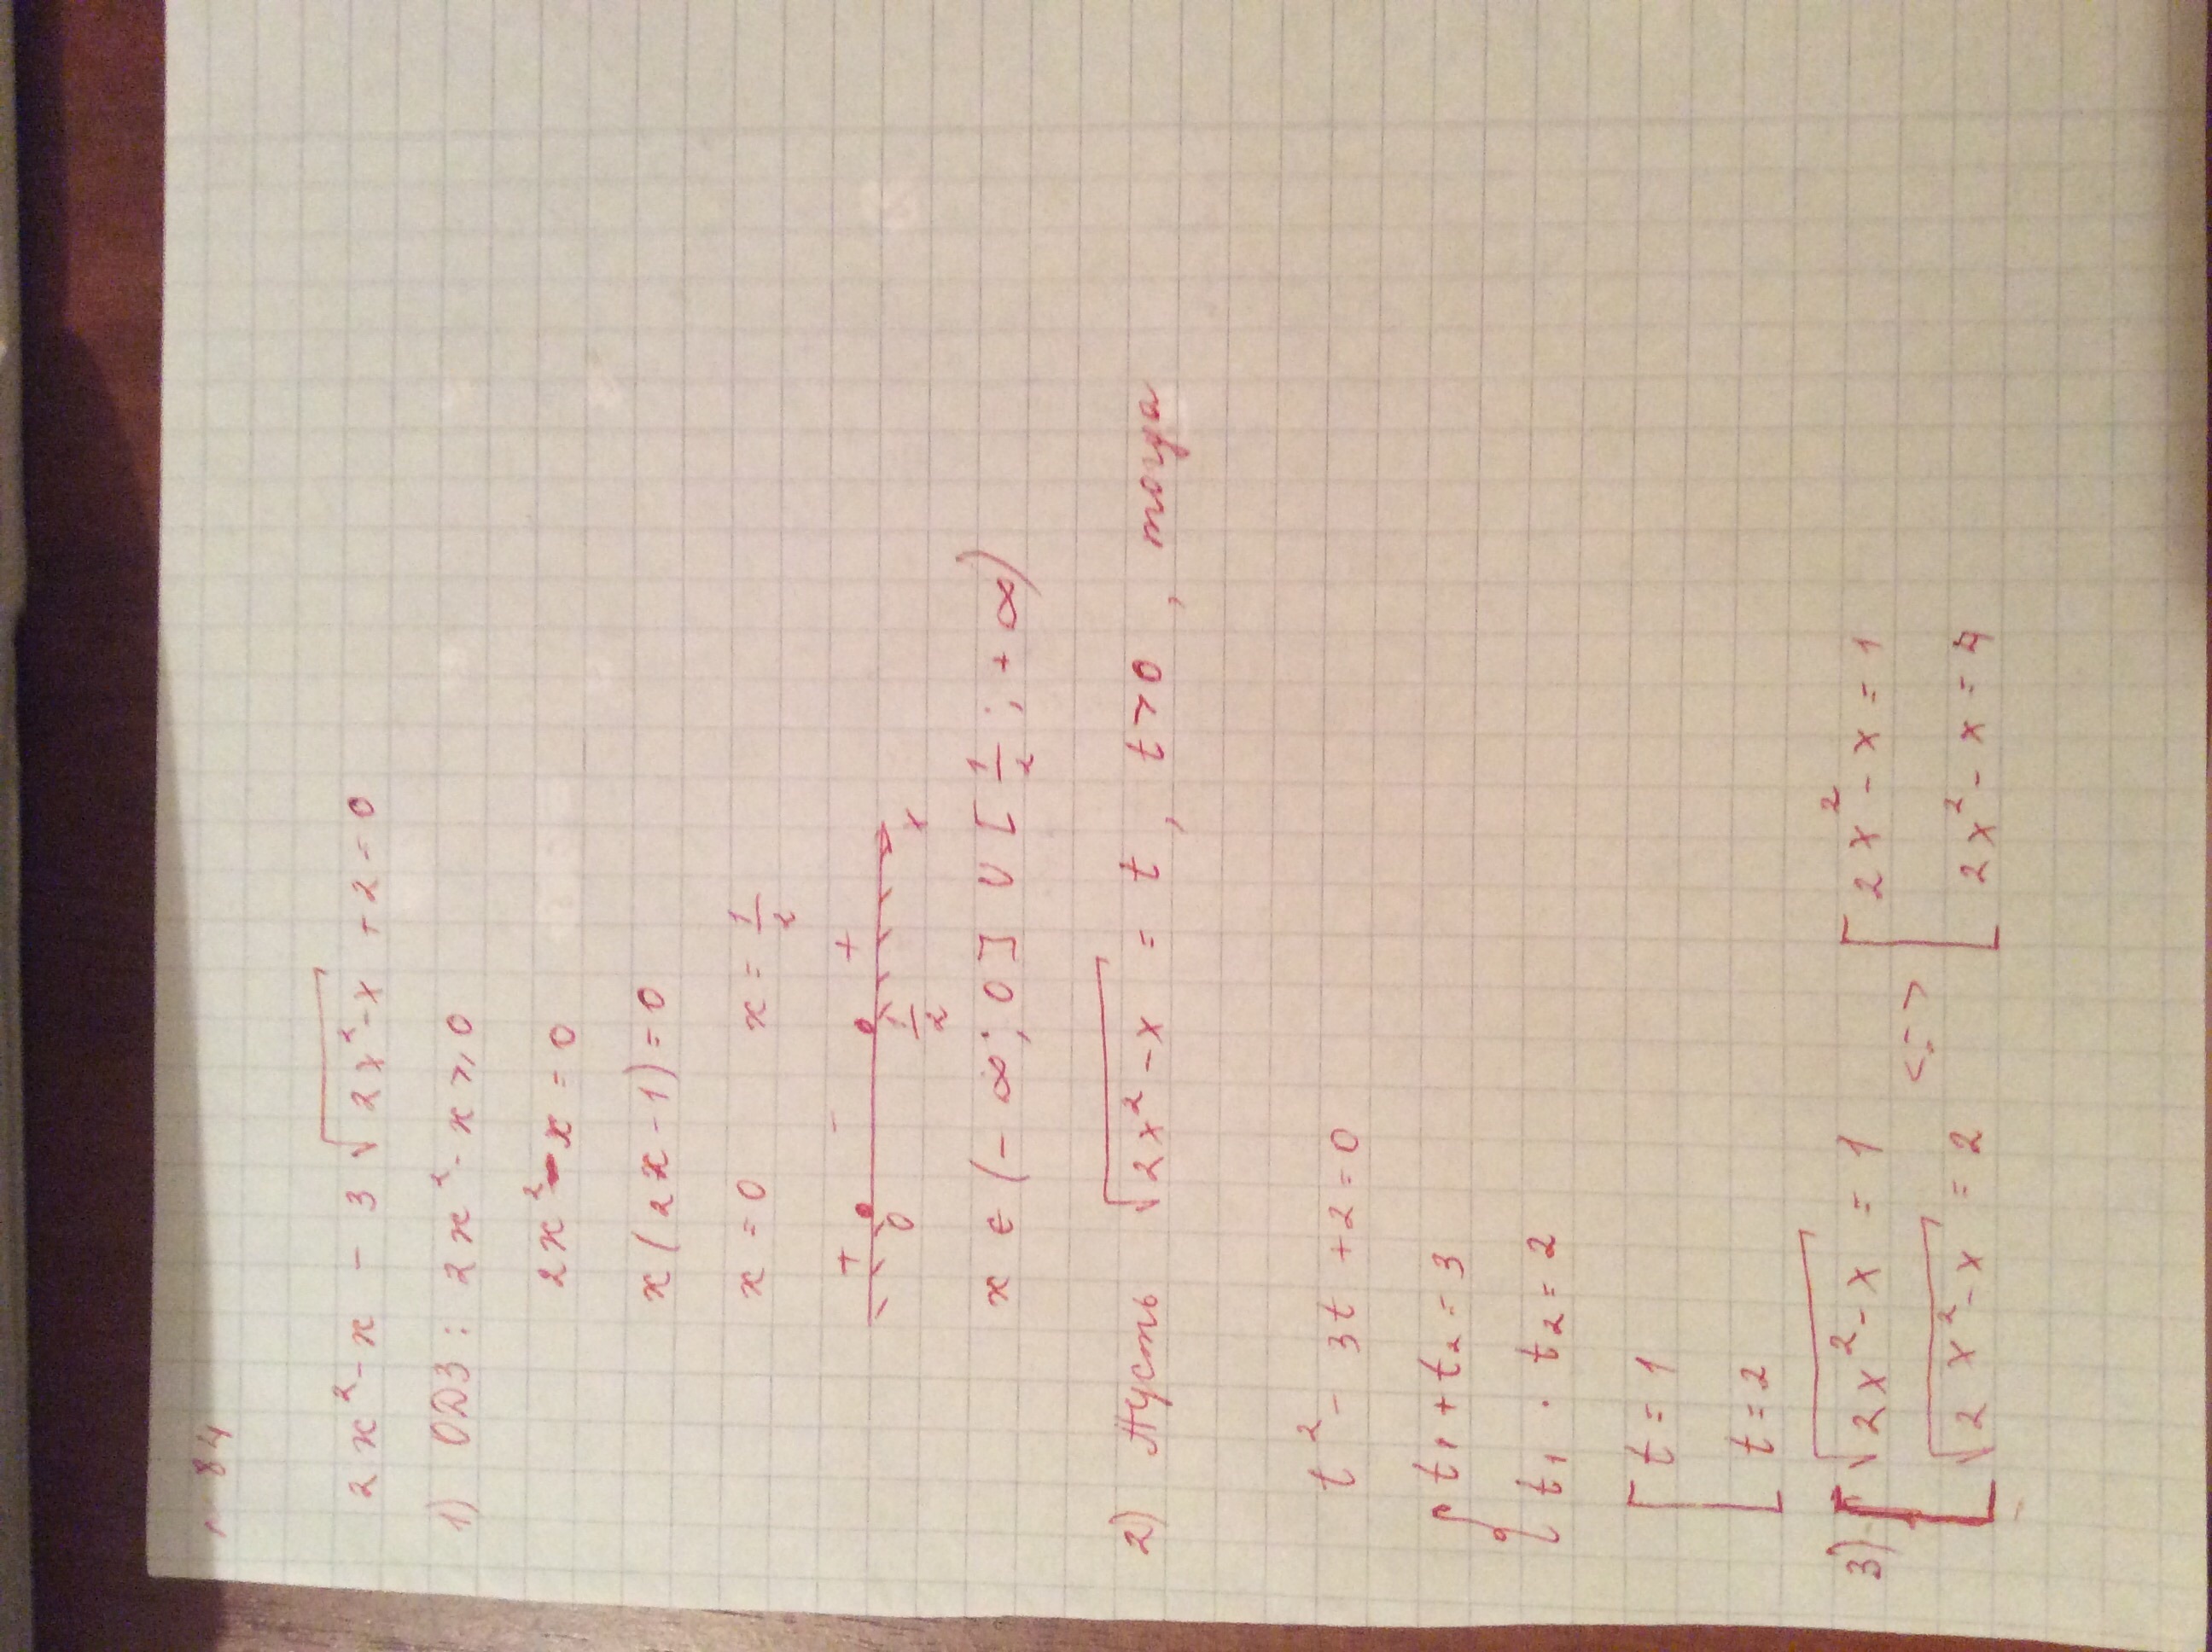 n 84
2x² - x - 3√(2x² - x) + 2 = 0
1) ОДЗ: 2x² - x ⩾ 0
2x² - x = 0
x(2x - 1) = 0
x = 0 x = 1/2
+ - +
0 1/2 x
x ∈ (-∞; 0] ∪ [1/2; +∞)
2) Пусть √(2x² - x) = t, t > 0, тогда
t² - 3t + 2 = 0
{ t₁ + t₂ = 3
t₁ · t₂ = 2
[ t = 1
t = 2
3) [ √(2x² - x) = 1 <=> [ 2x² - x = 1
√(2x² - x) = 2 2x² - x = 4